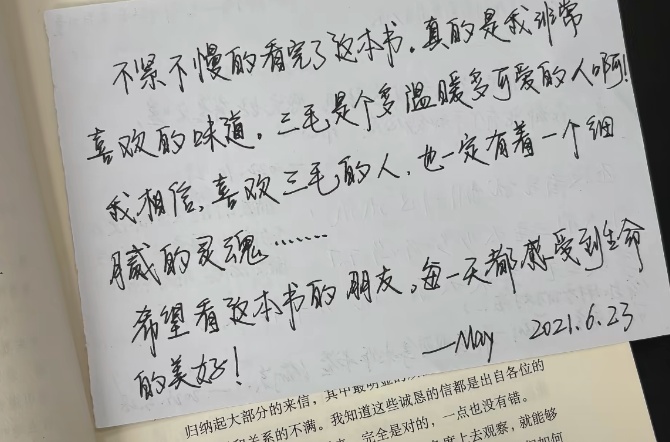 不紧不慢的看完了这本书。真的是我非常
喜欢的味道。三毛是个多温暖多可爱的人啊！
我相信，喜欢三毛的人，也一定有着一个细
腻的灵魂……
希望看这本书的朋友，每一天都感受到生命
的美好！
—May 2021.6.23
归纳起大部分的来信，其中最明显的
关系的不满。我知道这些诚恳的信都是出自各位的
完全是对的，一点也没有错。
度上去观察，就能够
如何